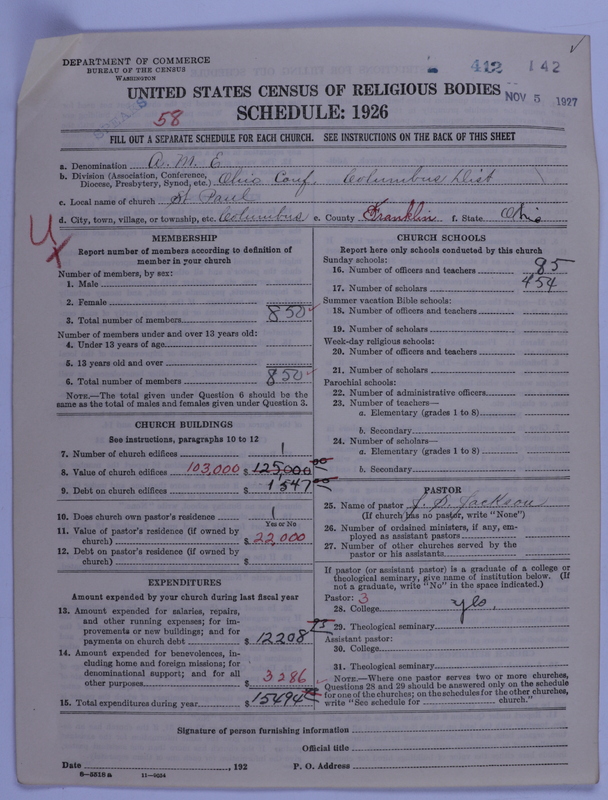 DEPARTMENT OF COMMERCE
BUREAU OF THE CENSUS
WASHINGTON
412 142
UNITED STATES CENSUS OF RELIGIOUS BODIES
NOV 5 1927
SCHEDULE: 1926
58
FILL OUT A SEPARATE SCHEDULE FOR EACH CHURCH. SEE INSTRUCTIONS ON THE BACK OF THIS SHEET
a. Denomination A. M. E
b. Division (Association, Conference, Diocese, Presbytery, Synod, etc.) Ohio Conf. Columbus Dist
c. Local name of church St Paul
d. City, town, village, or township, etc. Columbus e. County Franklin f. State Ohio
MEMBERSHIP
Report number of members according to definition of
member in your church
Number of members, by sex:
1. Male
2. Female
3. Total number of members 850
Number of members under and over 13 years old:
4. Under 13 years of age
5. 13 years old and over
6. Total number of members 850
NOTE.—The total given under Question 6 should be the
same as the total of males and females given under Question 3.
CHURCH BUILDINGS
See instructions, paragraphs 10 to 12
7. Number of church edifices 1
8. Value of church edifices 103,000 $ 125,000 00
9. Debt on church edifices $ 1547 00
10. Does church own pastor's residence 1
Yes or No
11. Value of pastor's residence (if owned by
church) $ 22,000
12. Debt on pastor's residence (if owned by
church) $
EXPENDITURES
Amount expended by your church during last fiscal year
13. Amount expended for salaries, repairs,
and other running expenses; for im-
provements or new buildings; and for
payments on church debt $ 12208
14. Amount expended for benevolences, in-
cluding home and foreign missions; for
denominational support; and for all
other purposes $ 3286
15. Total expenditures during year $ 15494
CHURCH SCHOOLS
Report here only schools conducted by this church
Sunday schools:
16. Number of officers and teachers 85
17. Number of scholars 454
Summer vacation Bible schools:
18. Number of officers and teachers
19. Number of scholars
Week-day religious schools:
20. Number of officers and teachers
21. Number of scholars
Parochial schools:
22. Number of administrative officers
23. Number of teachers—
a. Elementary (grades 1 to 8)
b. Secondary
24. Number of scholars—
a. Elementary (grades 1 to 8)
b. Secondary
PASTOR
25. Name of pastor Jackson
(If church has no pastor, write "None")
26. Number of ordained ministers, if any, em-
ployed as assistant pastors
27. Number of other churches served by the
pastor or his assistants
If pastor (or assistant pastor) is a graduate of a college or
theological seminary, give name of institution below. (If
not a graduate, write "No" in the space indicated.)
Pastor: 3
28. College yes,
29. Theological seminary
Assistant pastor:
30. College
31. Theological seminary
NOTE.—Where one pastor serves two or more churches,
Questions 28 and 29 should be answered only on the schedule
for one of the churches; on the schedules for the other churches,
write "See schedule for church."
Signature of person furnishing information
Official title
Date , 192 P. O. Address
8-5516 a 11-9034